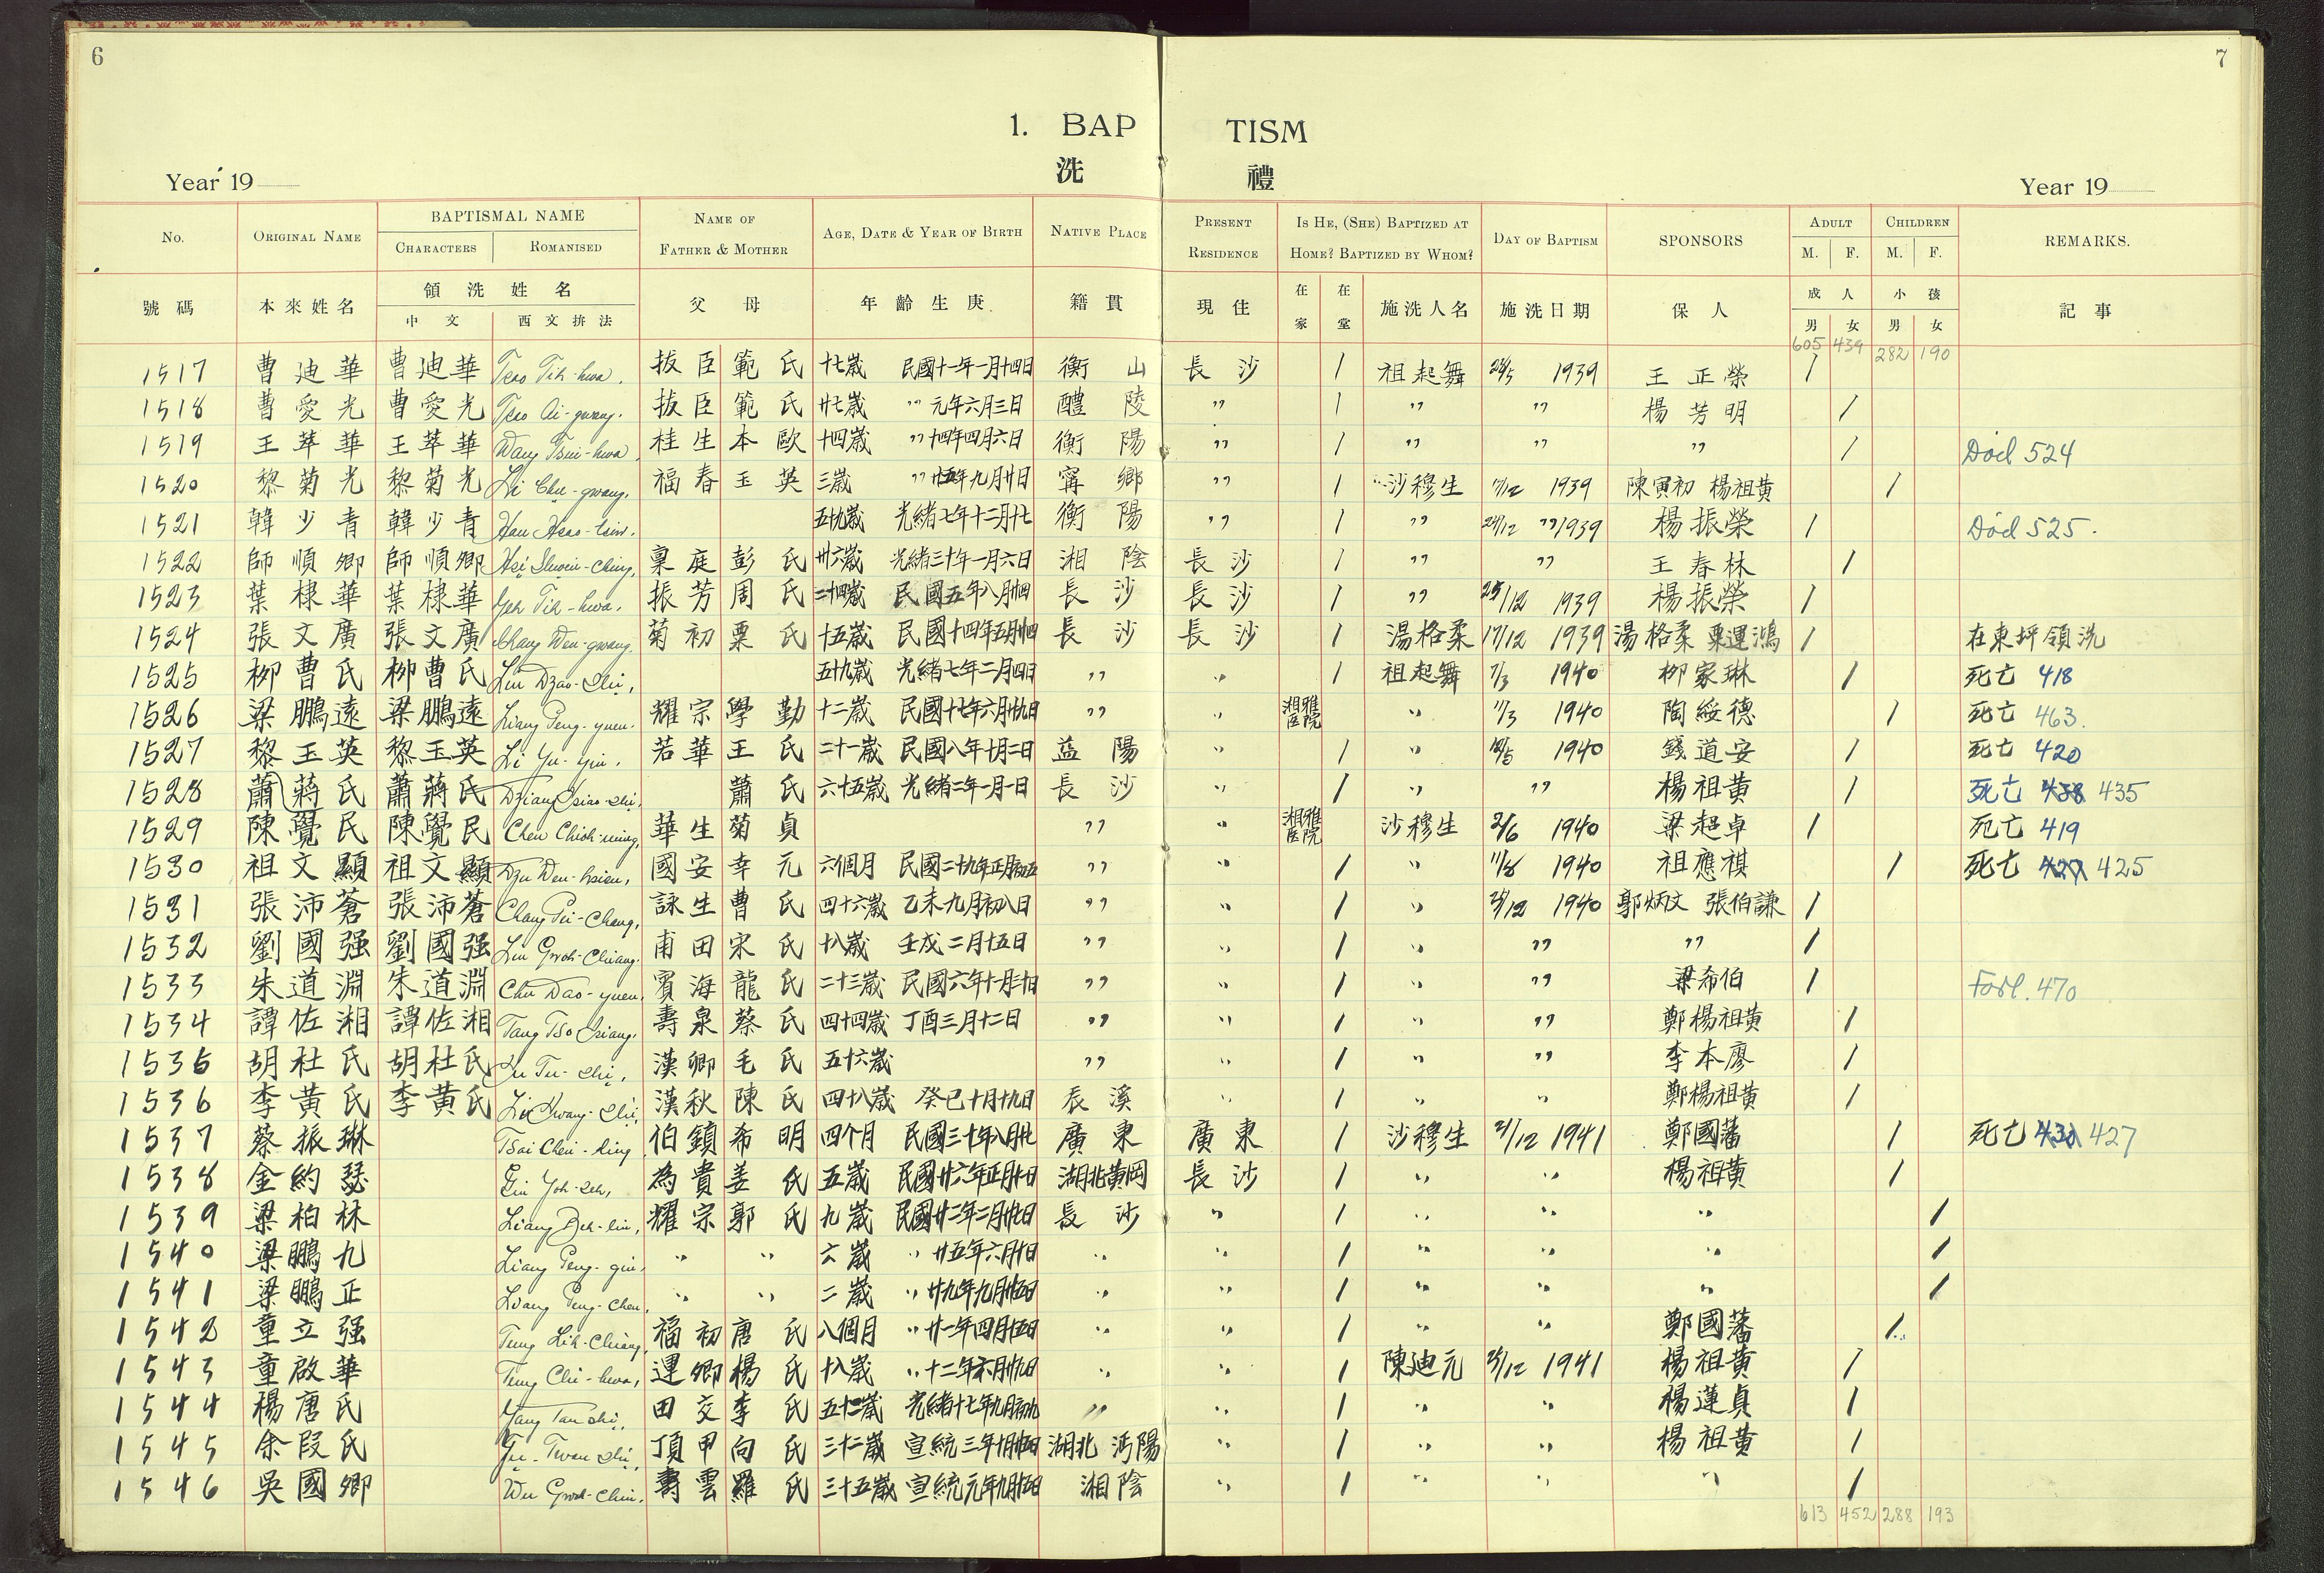 6
7
1. BAP TISM
洗 禮
Year 19
Year 19
No. ORIGINAL NAME BAPTISMAL NAME NAME OF AGE, DATE & YEAR OF BIRTH NATIVE PLACE PRESENT IS HE, (SHE) BAPTIZED AT DAY OF BAPTISM SPONSORS ADULT CHILDREN REMARKS.
CHARACTERS ROMANISED FATHER & MOTHER RESIDENCE HOME? BAPTIZED BY WHOM? M. F. M. F.
號碼 本來姓名 領洗姓名 父母 年齡生庚 籍貫 現住 在家 在堂 施洗人名 施洗日期 保人 成人 小孩 記事
中文 西文拚法 男 女 男 女
605 439 282 190
1517 曹迪華 曹迪華 Tsao Tih-hwa. 拔臣 範氏 十七歲 民國十一年一月十四日 衡山 長沙 / 祖起舞 1939 王正榮 /
1518 曹愛光 曹愛光 Tsao Ai-gwang. 拔臣 範氏 廿七歲 〃 元年六月三日 醴陵 〃 / 〃 〃 楊芳明 /
1519 王萃華 王萃華 Wang Tsui-hwa 桂生 本歐 十四歲 〃 十四年四月六日 衡陽 〃 / 〃 〃 〃 / Död 524
1520 黎菊光 黎菊光 Li Chu-gwang. 福春 玉英 三歲 〃 廿五年九月廿日 甯鄉 〃 / 沙穆生 17/12 1939 陳寅初 楊祖黄 /
1521 韓少青 韓少青 Han 五十九歲 光緒七年十二月十七 衡陽 〃 / 〃 24/12 〃 1939 楊振榮 / Död 525.
1522 師順卿 師順卿 稟庭 彭氏 卅六歲 光緒三十年一月六日 湘陰 長沙 / 〃 〃 王春林 /
1523 葉棣華 葉棣華 Yeh Tih-hwa. 振芳 周氏 二十四歲 民國五年八月十四 長沙 長沙 / 〃 25/12 1939 楊振榮 /
1524 張文廣 張文廣 Chang Wen-gwang. 菊初 粟氏 十五歲 民國十四年五月 長沙 長沙 / 湯格柔 17/12 1939 湯格柔 粟運鴻 / 在東坪領洗
1525 柳曹氏 柳曹氏 Liu Dzao-shi, 五十九歲 光緒七年二月四日 〃 〃 / 祖起舞 7/3 1940 柳家琳 / 死亡 418
1526 梁鵬遠 梁鵬遠 Liang Peng-yuen. 耀宗 學勤 十二歲 民國十七年六月十九日 〃 〃 湘雅医院 〃 11/3 1940 陶綏德 / 死亡 463.
1527 黎玉英 黎玉英 Li Yu-yin. 若華 王氏 二十一歲 民國八年十月二日 益陽 〃 / 〃 1940 錢道安 / 死亡 420
1528 蕭蔣氏 蕭蔣氏 Dziang Hsiao-shi, 蕭氏 六十五歲 光緒二年一月一日 長沙 〃 / 〃 〃 楊祖黄 / 死亡 438 435
1529 陳覺民 陳覺民 Chen Chioh-ming, 華生 菊貞 〃 〃 湘雅医院 沙穆生 2/6 1940 梁超卓 / 死亡 419
1530 祖文顯 祖文顯 Dzu Wen-hsien, 國安 幸元 六個月 民國二十九年正月初五 〃 〃 / 〃 11/8 1940 祖應祺 / 死亡 427 425
1531 張沛蒼 張沛蒼 Chang Pei-chang, 詠生 曹氏 四十六歲 乙未九月初八日 〃 〃 / 〃 25/12 1940 郭炳文 張伯謙 /
1532 劉國强 劉國强 Liu Gwoh-Chiang. 甫田 宋氏 十八歲 壬戌二月十五日 〃 〃 / 〃 〃 〃 /
1533 朱道淵 朱道淵 Chu Dao-yuen, 賓海 龍氏 二十三歲 民國六年十月三十日 〃 〃 / 〃 〃 梁希伯 / 470
1534 譚佐湘 譚佐湘 Tang Tso-hsiang. 壽泉 蔡氏 四十四歲 丁酉三月十二日 〃 〃 / 〃 〃 鄭楊祖黄 /
1535 胡杜氏 胡杜氏 Hu Tu-shi, 漢卿 毛氏 五十六歲 〃 〃 / 〃 〃 李本廖 /
1536 李黃氏 李黃氏 Li Hwang-shi, 漢秋 陳氏 四十八歲 癸巳十月十九日 辰溪 〃 / 〃 〃 鄭楊祖黄 /
1537 蔡振琳 Tsai Chen-ling 伯鎮 希明 四个月 民國三十年八月廿 廣東 廣東 / 沙穆生 21/12 1941 鄭國藩 / 死亡 430 427
1538 金約瑟 Gin Yoh-seh, 為貴 姜氏 五歲 民國廿六年正月十日 湖北黄岡 長沙 / 〃 〃 楊祖黄 /
1539 梁柏林 Liang Beh-lin, 耀宗 郭氏 九歲 民國廿二年二月廿七日 長沙 〃 / 〃 〃 〃 /
1540 梁鵬九 Liang Peng-giu, 〃 〃 六歲 〃 廿五年六月十日 〃 〃 / 〃 〃 〃 /
1541 梁鵬正 Liang Peng-chen, 〃 〃 二歲 〃 廿九年九月十五日 〃 〃 / 〃 〃 〃 /
1542 童立强 Tung Lih-Chiang, 福初 唐氏 八個月 〃 廿一年四月十五日 〃 〃 / 〃 〃 鄭國藩 /
1543 童啟華 Tung Chi-hwa, 運卿 楊氏 十八歲 〃 十二年六月十九日 〃 〃 / 陳迪元 25/12 1941 楊祖黄 /
1544 楊唐氏 Yang Tan shi, 田交 李氏 五十二歲 光緒十七年九月初九 〃 〃 / 〃 〃 楊蓮貞 /
1545 余段氏 Yu-Twan shi, 頂甲 向氏 三十二歲 宣統三年十月十五日 湖北沔陽 〃 / 〃 〃 楊祖黄 /
1546 吳國卿 Wu Gwoh-Chin. 壽雲 羅氏 三十五歲 宣統元年九月十五日 湘陰 〃 / 〃 〃 〃 /
613 452 288 193